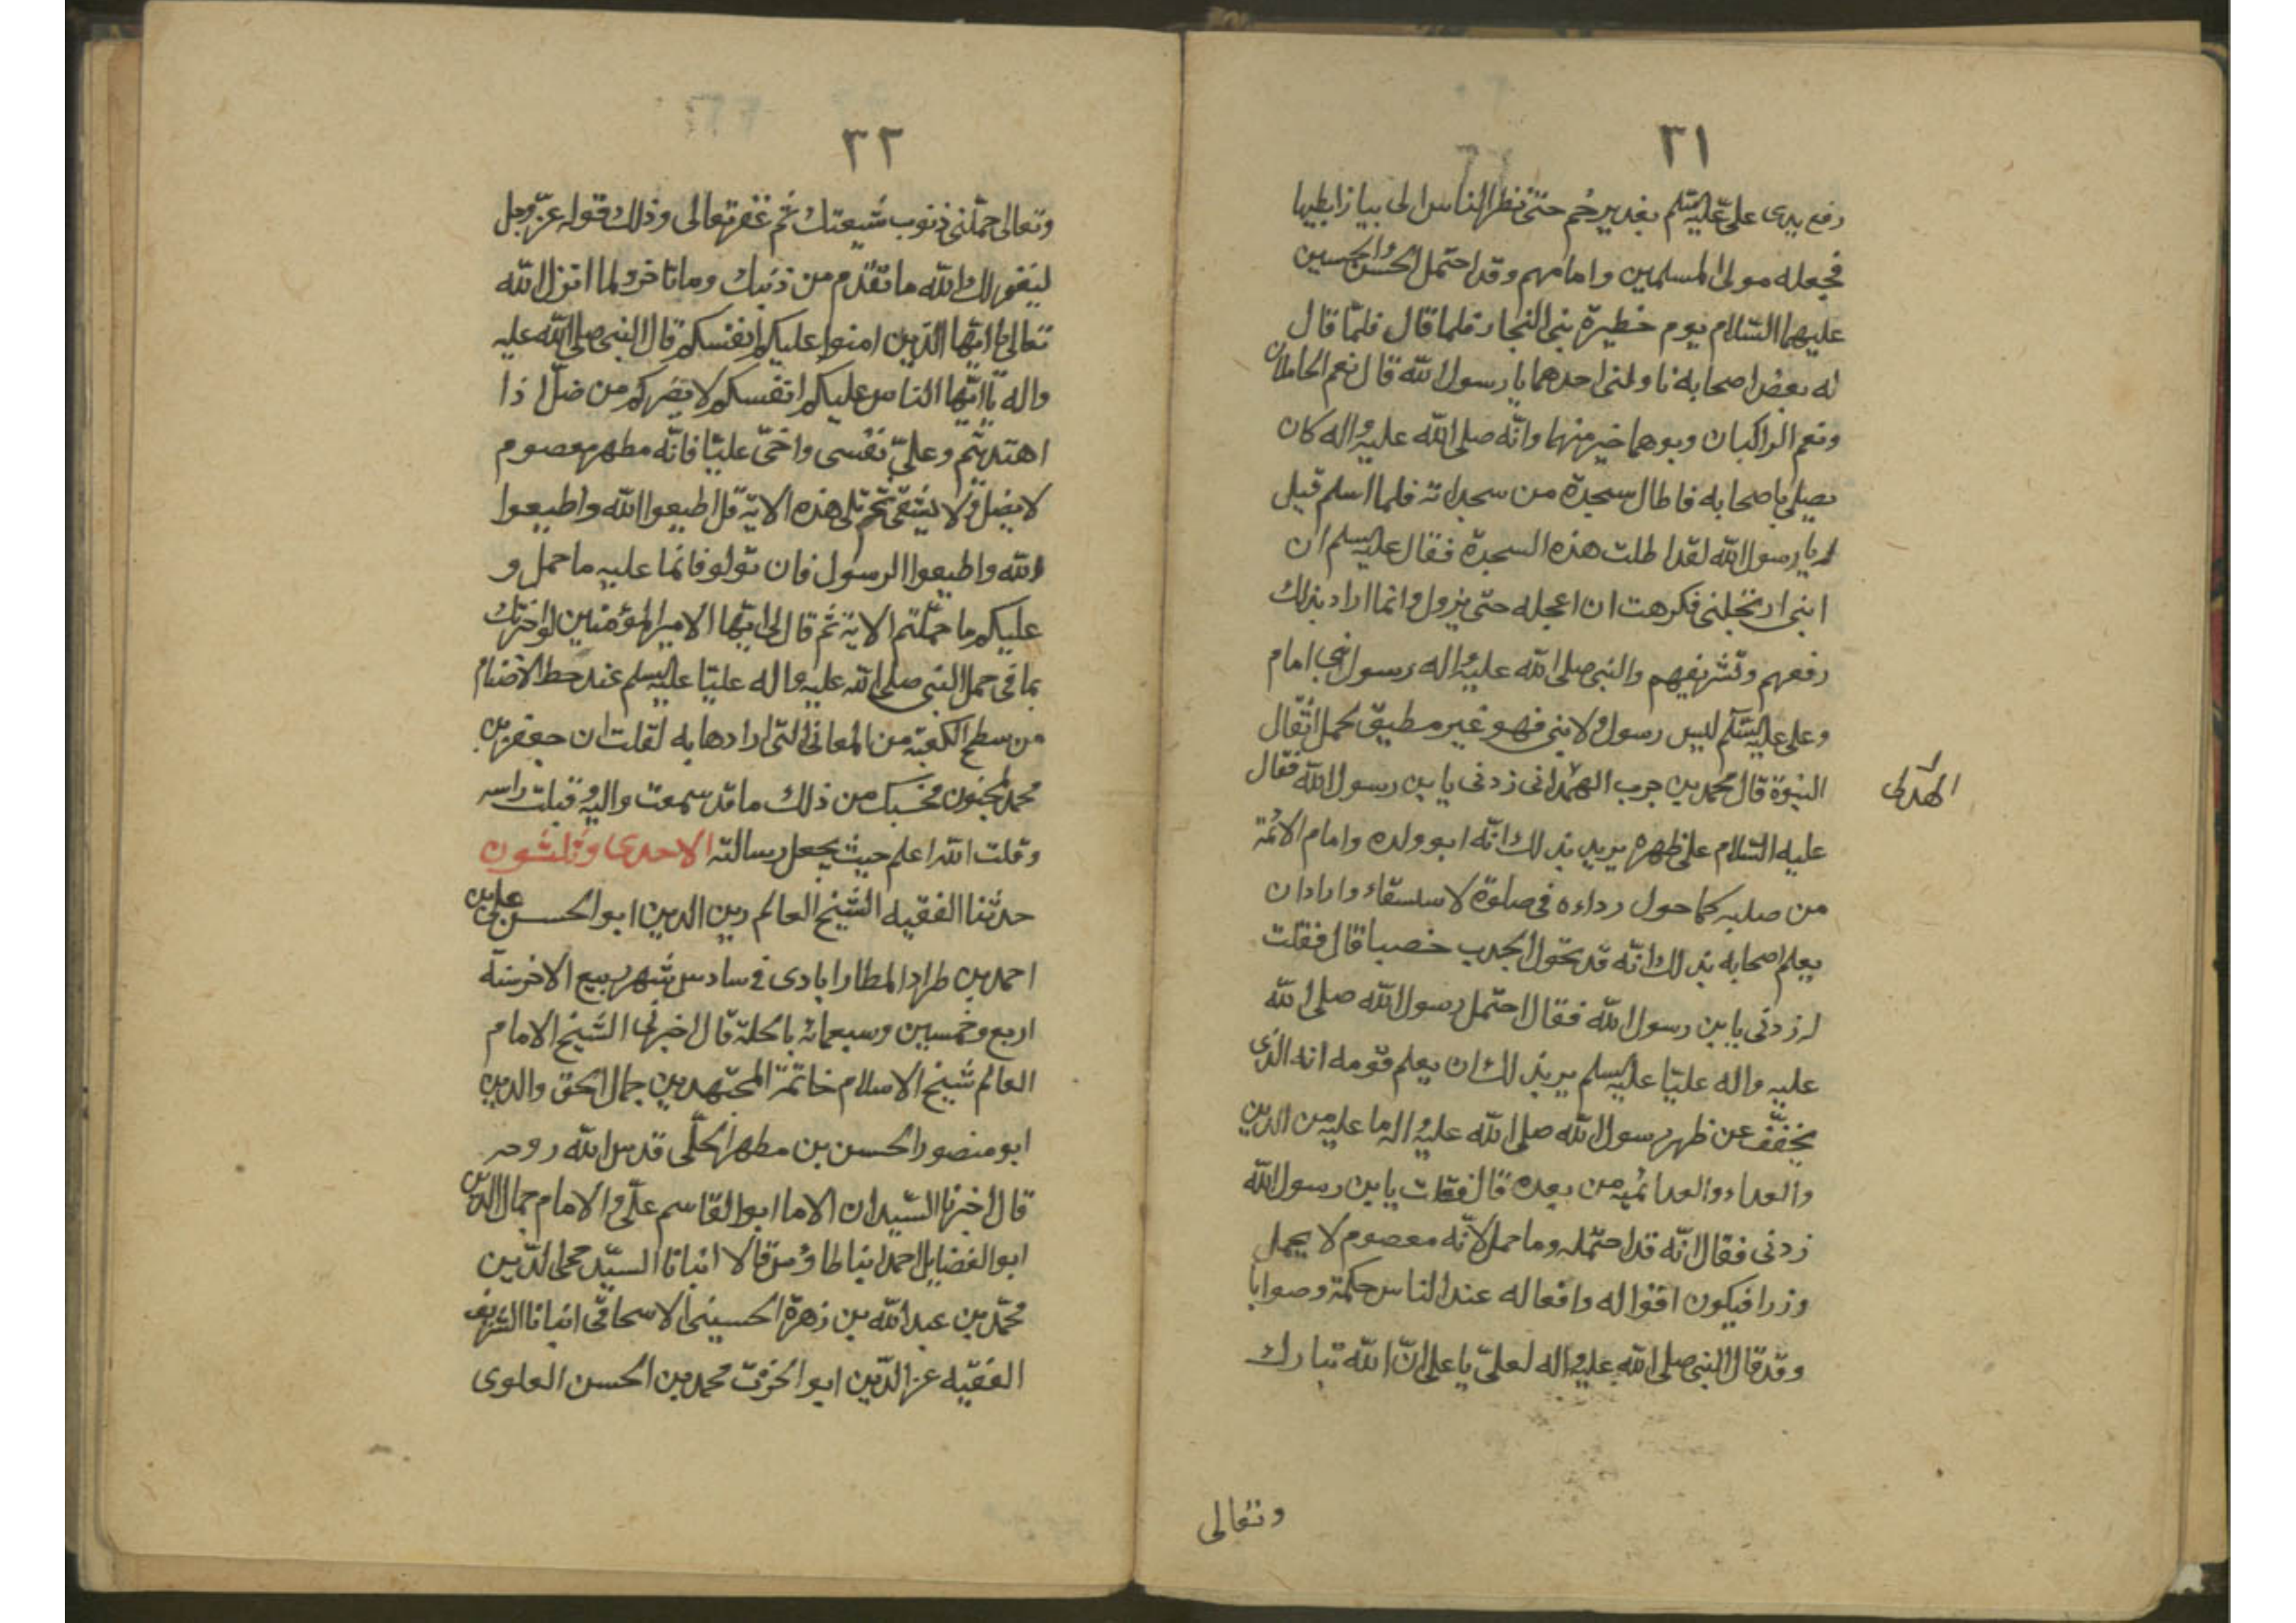 ٣١
رفع يدى على عليه السلم بغدير خم حتى نظر الناس الى بياز ابطيها
فجعله مولى المسلمين وامامهم وقد احتمل الحسن والحسين
عليهما السّلام يوم خطيرة بنى النجار فلما قال فلمّا قال
له بعض اصحابه ناولنى احدهما يا رسول الله قال نعم الحاملان
ونعم الراكبان وبوهما خير منهما وانّه صلى الله عليه واله كان
يصلى باصحابه فاطال سجدة من سجداته فلما اسلم قيل
يا رسول الله لقد اطلت هذه السجدة فقال عليه السلم ان
ابنى ارتحلنى فكرهت ان اعجله حتى ينزل وانما اراد بذلك
رفعهم وتشريفهم والنبى صلى الله عليه واله رسول نبى امام
وعلى عليه السّلم ليس رسول ولا نبى فهو غير مطيق لحمل اثقال
النبوة قال محمد بن حرب الهمدانى زدنى يا بن رسول الله فقال
الهلالى
عليه السّلام على ظهره يريد بذلك انّه ابو ولده وامام الائمّة
من صلبه كما حول رداءه فى صلوة لاستسقاء وارادان
يعلم اصحابه بذلك انّه قد تحول الجدب خصبا قال فقلت
له زدنى يا بن رسول الله فقال احتمل رسول الله صلى الله
عليه واله عليّا عليه السلم يريد بذلك ان يعلم قومه انه الذى
يخفّف عن ظهر رسول الله صلى الله عليه واله ما عليه من الدين
والعداء والعدائه من بعده قال فقلت يا بن رسول الله
زدنى فقال انّه قد احتمله وما حمل لانّه معصوم لا يحمل
وزرا فيكون اقواله وافعاله عند الناس حكمة وصوابا
وقد قال النبى صلى الله عليه واله لعلىّ يا على انّ الله تبارك
وتعالى
٣٢
وتعالى حمّلنى ذنوب شيعتك ثم غفر تعالى وذلك قوله عزّ وجل
ليغفر لك الله ما تقدم من ذنبك وما تاخر ولما انزل الله
تعالى يا ايّها الذين امنوا عليكم انفسكم قال النبى صلى الله عليه
واله يا ايّها الناس عليكم انفسكم لا يضركم من ضلّ اذا
اهتديتم وعلىّ نفسى واخى عليّا فانّه مطهر معصوم
لا يضل ولا يشقى ثم تلى هذه الاية قل اطيعوا الله واطيعوا
الله واطيعوا الرسول فان تولو فانّما عليه ما حمل و
عليكم ما حمّلتم الاية ثم قال لى ايّها الامير المؤمنين لو اخبرتك
بما فى حمل النبى صلى الله عليه واله عليّا عليه السلم عند حط الاضنام
من سطح الكعبة من المعانى التى ارادها به لقلت ان جعفر بن
محمد لمجنون فحسبك من ذلك ما قد سمعت واليه وقبلت راسه
وقلت الله اعلم حيث يجعل رسالته الاحدى وثلثون
حدثنا الفقيه الشيخ العالم زين الدين ابو الحسن على بن
احمد بن طراد المطارابادى فى سادس شهر ربيع الاخر سنة
اربع وخمسين وسبعمائه بالحلة قال اخبرنى الشيخ الامام
العالم شيخ الاسلام خاتمة المجتهدين جمال الحق والدين
ابو منصور الحسن بن مطهر الحلّى قدس الله روحه
قال اخبرنا السّيدان الاما ابو القاسم علىّ والامام جمال الدين
ابو الفضايل احمد ابنا طاوس قالا انبانا السيّد محى الدّين
محمّد بن عبد الله بن زهرة الحسينى الاسحاقى انبانا الشريف
الفقيه عز الدّين ابو الحرث محمد بن الحسن العلوى